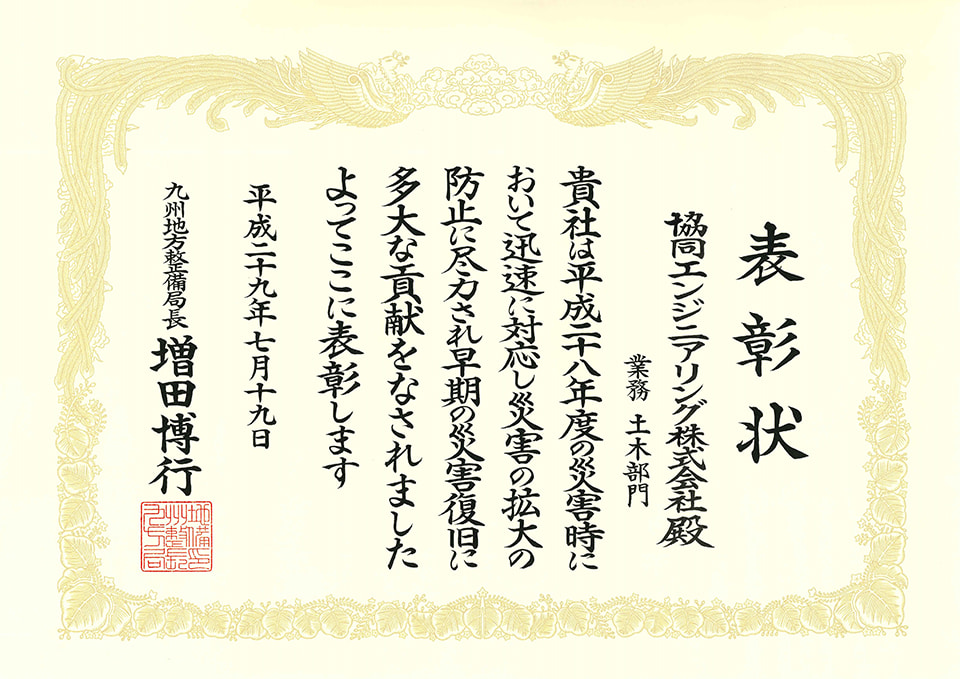 表彰状
協同エンジニアリング株式会社殿
業務 土木部門
貴社は平成二十八年度の災害時に
おいて迅速に対応し災害の拡大の
防止に尽力され早期の災害復旧に
多大な貢献をなされました
よってここに表彰します
平成二十九年七月十九日
九州地方整備局長 増田博行